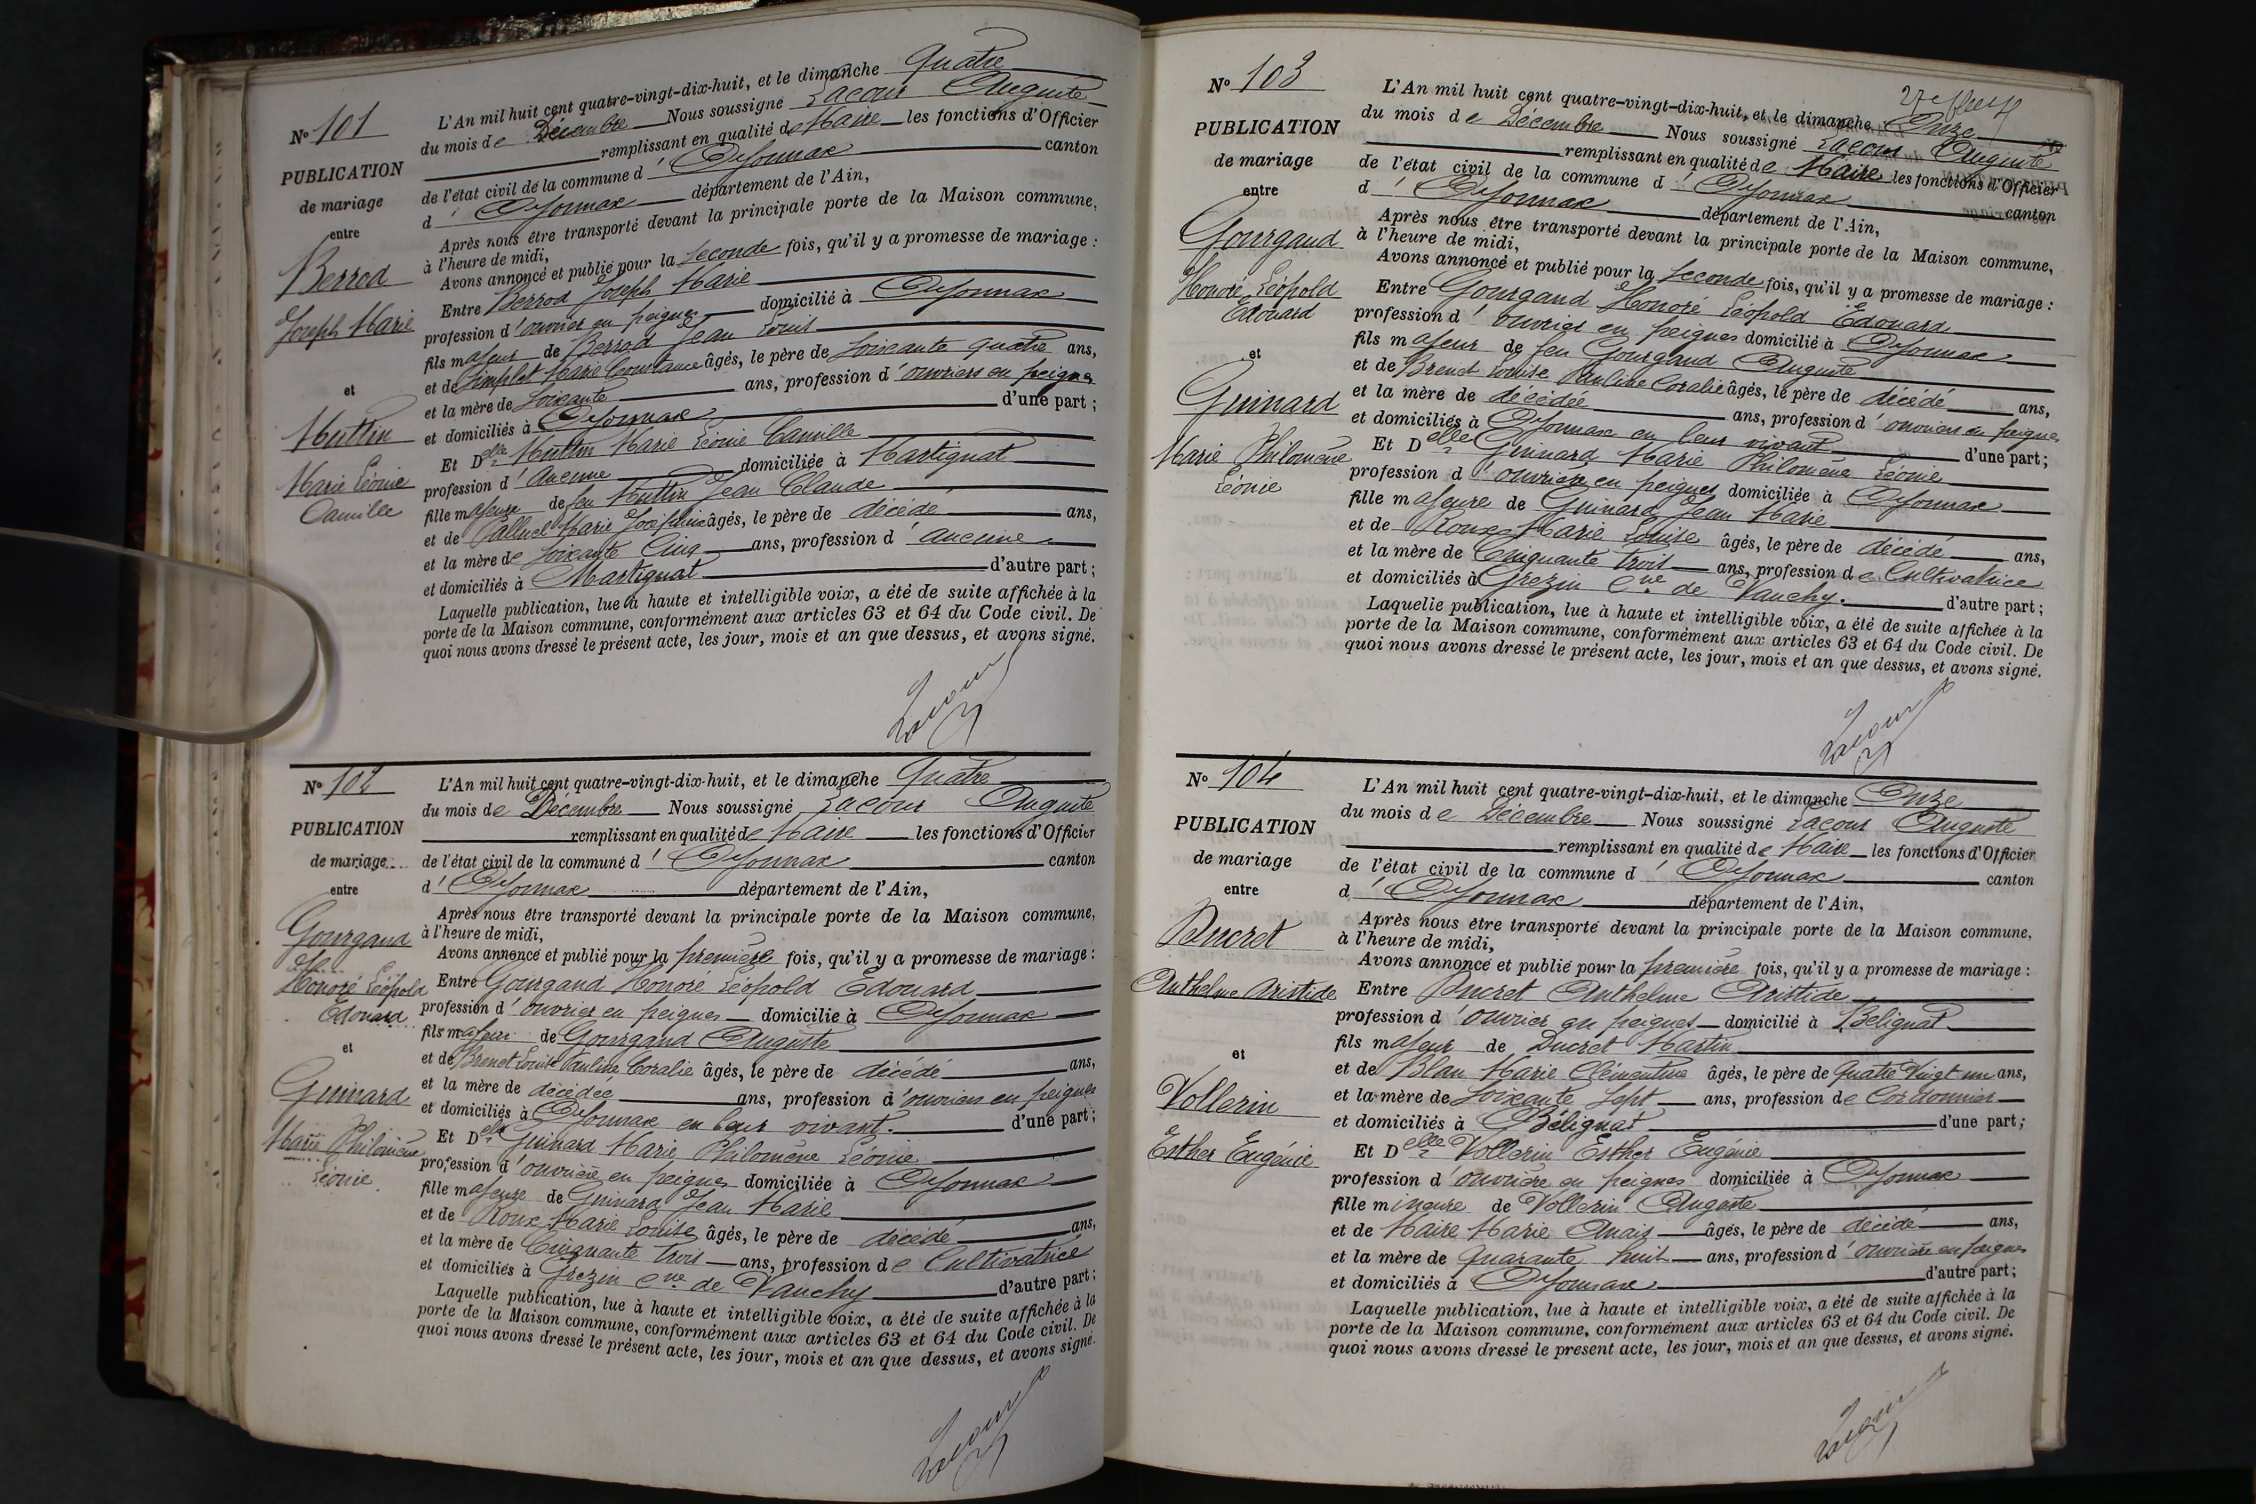 Nº 101
PUBLICATION
de mariage
entre
Berrod
Joseph Marie
et
Muttin
Marie Léonie
Camille
L'An mil huit cent quatre-vingt-dix-huit, et le dimanche Quatre
du mois de Décembre Nous soussigné Lacour Auguste
remplissant en qualité de Maire les fonctions d'Officier
de l'état civil de la commune d' Oyonnax canton
d' Oyonnax département de l'Ain,
Après nous être transporté devant la principale porte de la Maison commune,
à l'heure de midi,
Avons annoncé et publié pour la seconde fois, qu'il y a promesse de mariage :
Entre Berrod Joseph Marie
profession d' ouvrier en peignes domicilié à Oyonnax
fils majeur de Berrod Jean Louis
et de Simplet Marie Constance âgés, le père de soixante quatre ans,
et la mère de soixante ans, profession d' ouvriers en peignes
et domiciliés à Oyonnax d'une part ;
Et Delle Muttin Marie Léonie Camille
profession d' aucune domiciliée à Martignat
fille majeure de feu Muttin Jean Claude
et de Marie Joséphine âgés, le père de décédé ans,
et la mère de soixante cinq ans, profession d' aucune
et domiciliés à Martignat d'autre part ;
Laquelle publication, lue à haute et intelligible voix, a été de suite affichée à la
porte de la Maison commune, conformément aux articles 63 et 64 du Code civil. De
quoi nous avons dressé le présent acte, les jour, mois et an que dessus, et avons signé.
Lacour
Nº 102
PUBLICATION
de mariage
entre
Gourgaud
Honoré Léopold
Edouard
et
Guinard
Marie Philomène
Léonie
L'An mil huit cent quatre-vingt-dix-huit, et le dimanche Quatre
du mois de Décembre Nous soussigné Lacour Auguste
remplissant en qualité de Maire les fonctions d'Officier
de l'état civil de la commune d' Oyonnax canton
d' Oyonnax département de l'Ain,
Après nous être transporté devant la principale porte de la Maison commune,
à l'heure de midi,
Avons annoncé et publié pour la première fois, qu'il y a promesse de mariage :
Entre Gourgaud Honoré Léopold Edouard
profession d' ouvrier en peignes domicilié à Oyonnax
fils majeur de Gourgaud Auguste
et de Brenet Louise Pauline Coralie âgés, le père de décédé ans,
et la mère de décédée ans, profession d' ouvriers en peignes
et domiciliés à Oyonnax en leur vivant. d'une part ;
Et Delle Guinard Marie Philomène Léonie
profession d' ouvrière en peignes domiciliée à Oyonnax
fille majeure de Guinard Jean Marie
et de Roux Marie Louise âgés, le père de décédé ans,
et la mère de Cinquante trois ans, profession de Cultivatrice
et domiciliés à Grezin cne de Vanchy d'autre part ;
Laquelle publication, lue à haute et intelligible voix, a été de suite affichée à la
porte de la Maison commune, conformément aux articles 63 et 64 du Code civil. De
quoi nous avons dressé le présent acte, les jour, mois et an que dessus, et avons signé.
Lacour
Nº 103
PUBLICATION
de mariage
entre
Gourgaud
Honoré Léopold
Edouard
et
Guinard
Marie Philomène
Léonie
L'An mil huit cent quatre-vingt-dix-huit, et le dimanche Onze
du mois de Décembre Nous soussigné Lacour Auguste
remplissant en qualité de Maire les fonctions d'Officier
de l'état civil de la commune d' Oyonnax canton
d' Oyonnax département de l'Ain,
Après nous être transporté devant la principale porte de la Maison commune,
à l'heure de midi,
Avons annoncé et publié pour la seconde fois, qu'il y a promesse de mariage :
Entre Gourgaud Honoré Léopold Edouard
profession d' ouvrier en peignes domicilié à Oyonnax
fils majeur de feu Gourgaud Auguste
et de Brenet Louise Pauline Coralie âgés, le père de décédé ans,
et la mère de décédée ans, profession d' ouvriers en peignes
et domiciliés à Oyonnax en leur vivant d'une part ;
Et Delle Guinard Marie Philomène Léonie
profession d' ouvrière en peignes domiciliée à Oyonnax
fille majeure de Guinard Jean Marie
et de Roux Marie Louise âgés, le père de décédé ans,
et la mère de Cinquante trois ans, profession de Cultivatrice
et domiciliés à Grezin cne de Vanchy. d'autre part ;
Laquelle publication, lue à haute et intelligible voix, a été de suite affichée à la
porte de la Maison commune, conformément aux articles 63 et 64 du Code civil. De
quoi nous avons dressé le présent acte, les jour, mois et an que dessus, et avons signé.
Lacour
Nº 104
PUBLICATION
de mariage
entre
Ducret
Anthelme Aristide
et
Vollerin
Esther Eugénie
L'An mil huit cent quatre-vingt-dix-huit, et le dimanche Onze
du mois de Décembre Nous soussigné Lacour Auguste
remplissant en qualité de Maire les fonctions d'Officier
de l'état civil de la commune d' Oyonnax canton
d' Oyonnax département de l'Ain,
Après nous être transporté devant la principale porte de la Maison commune,
à l'heure de midi,
Avons annoncé et publié pour la première fois, qu'il y a promesse de mariage :
Entre Ducret Anthelme Aristide
profession d' ouvrier en peignes domicilié à Bélignat
fils majeur de Ducret Martin
et de Blan Marie Clémentine âgés, le père de quatre vingt un ans,
et la mère de soixante sept ans, profession de Cordonnier
et domiciliés à Bélignat d'une part ;
Et Delle Vollerin Esther Eugénie
profession d' ouvrière en peignes domiciliée à Oyonnax
fille mineure de Vollerin Auguste
et de Maire Marie Anaïs âgés, le père de décédé ans,
et la mère de quarante huit ans, profession d' ouvrière en peignes
et domiciliés à Oyonnax d'autre part ;
Laquelle publication, lue à haute et intelligible voix, a été de suite affichée à la
porte de la Maison commune, conformément aux articles 63 et 64 du Code civil. De
quoi nous avons dressé le présent acte, les jour, mois et an que dessus, et avons signé.
Lacour